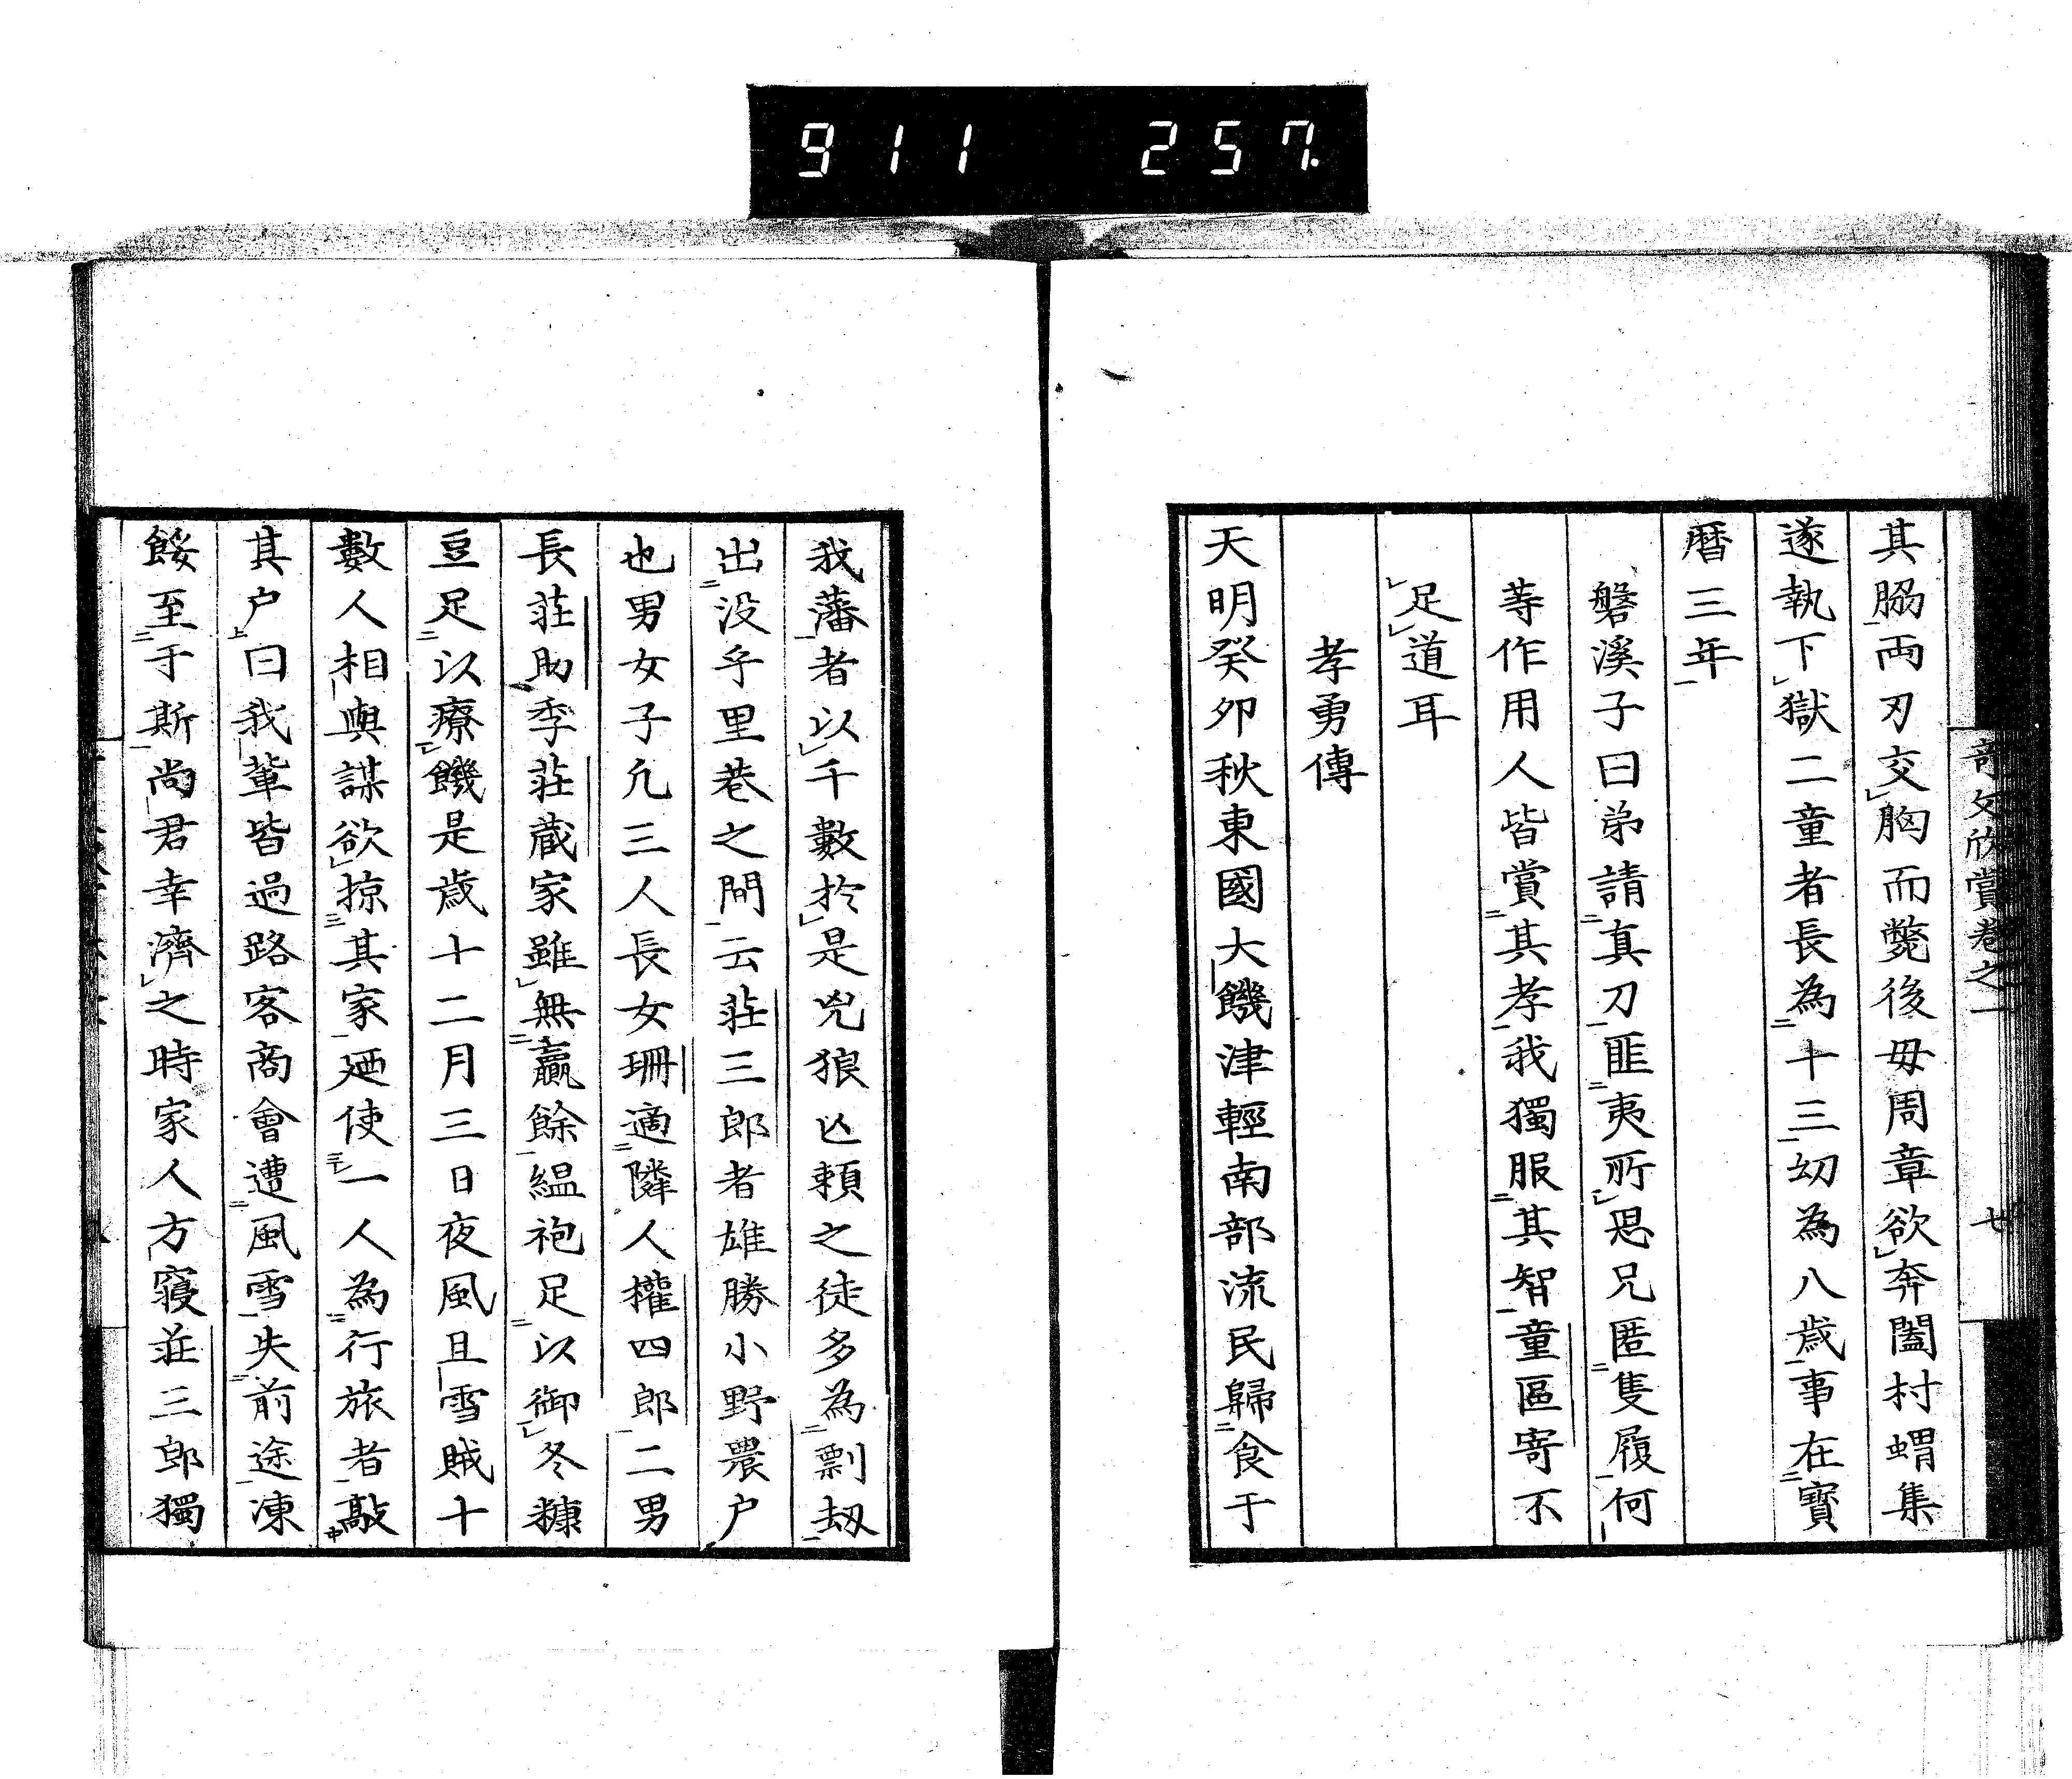 911 257.
奇文欣賞卷之一 七
其脇両刃交胸而斃後母周章欲奔闔村蝟集
遂執下獄二童者長為十三幼為八歳事在寳
暦三年
磐溪子曰弟請真刀匪夷所思兄匿隻履何
等作用人皆賞其孝我獨服其智童區寄不
足道耳
孝勇傳
天明癸卯秋東國大饑津輕南部流民歸食于
我藩者以千數於是兇狼亾頼之徒多為剽刼
出没乎里巷之間云莊三郎者雄勝小野農户
也男女子凢三人長女珊適隣人權四郎二男
長莊助季莊蔵家雖無贏餘緼袍足以御冬糠
豆足以療饑是歳十二月三日夜風且雪賊十
數人相與謀欲掠其家廼使一人為行旅者敲
其户曰我輩皆過路客商會遭風雪失前途凍
餒至于斯尚君幸濟之時家人方寢莊三郎獨